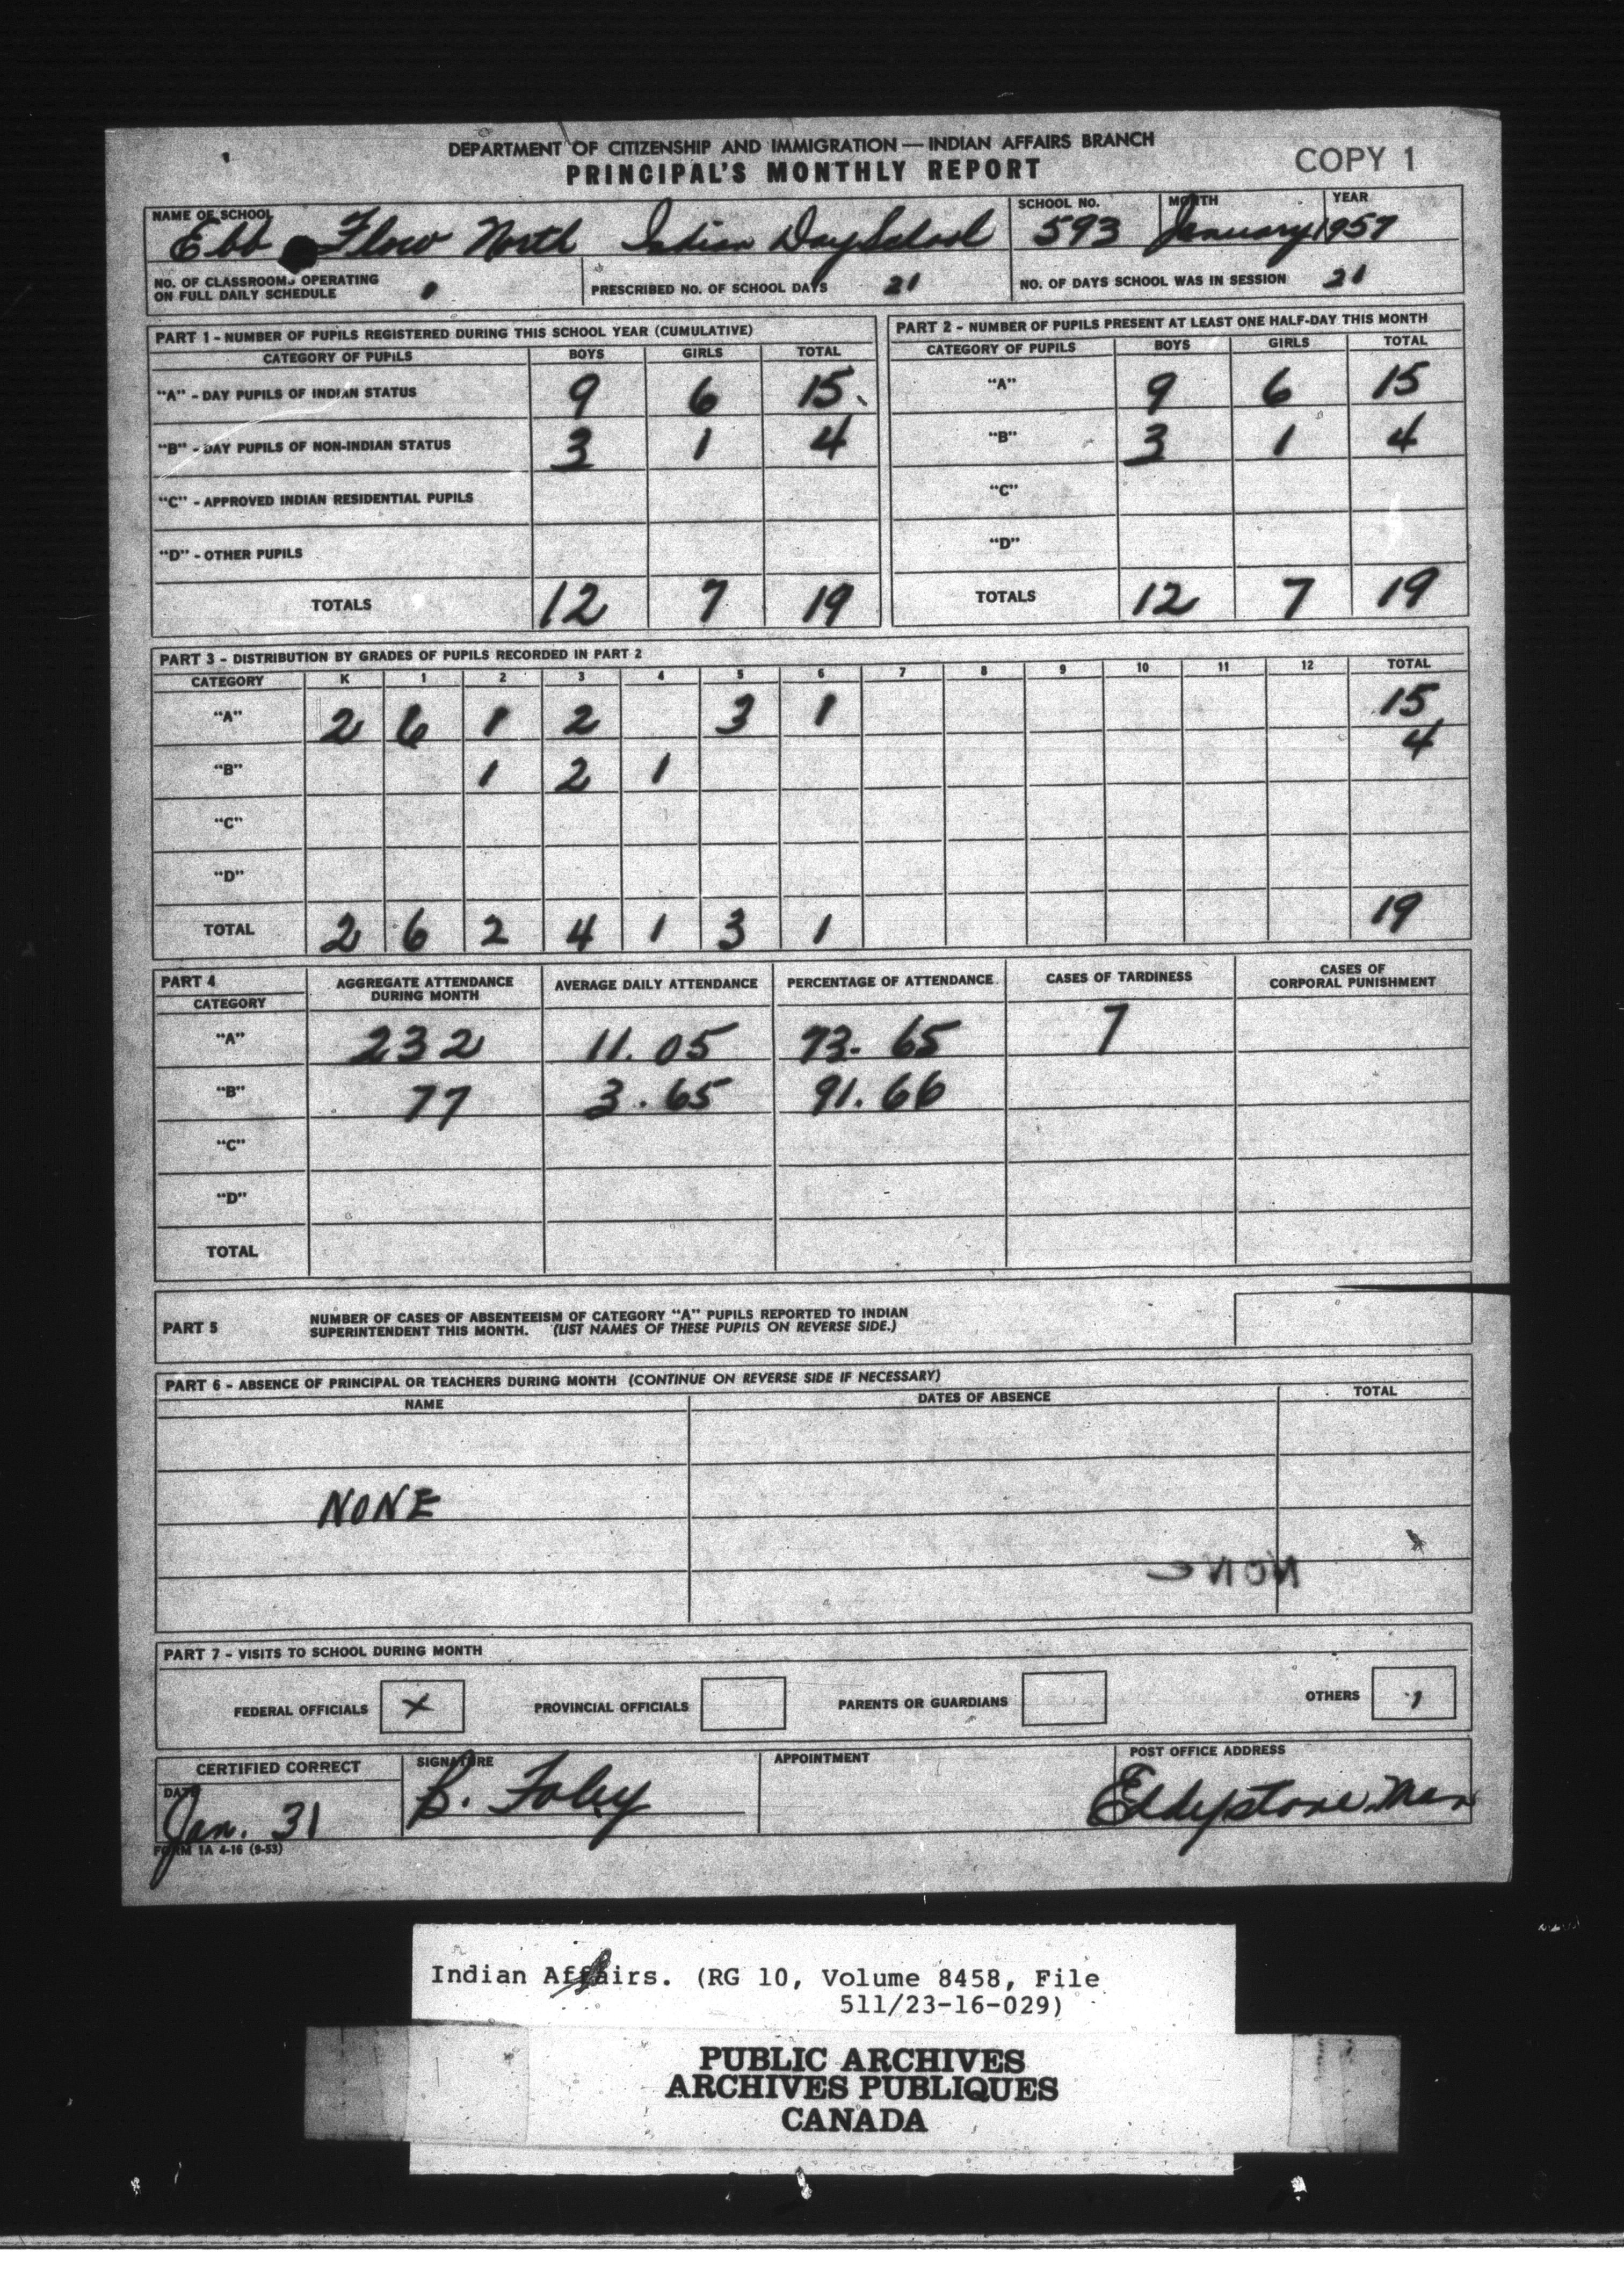 DEPARTMENT OF CITIZENSHIP AND IMMIGRATION — INDIAN AFFAIRS BRANCH
PRINCIPAL'S MONTHLY REPORT
COPY 1
NAME OF SCHOOL SCHOOL NO. MONTH YEAR
Ebb Flow North Indian Day School 593 January 1957
NO. OF CLASSROOMS OPERATING
ON FULL DAILY SCHEDULE 1 PRESCRIBED NO. OF SCHOOL DAYS 21 NO. OF DAYS SCHOOL WAS IN SESSION 21
PART 1 - NUMBER OF PUPILS REGISTERED DURING THIS SCHOOL YEAR (CUMULATIVE)
CATEGORY OF PUPILS BOYS GIRLS TOTAL
"A" - DAY PUPILS OF INDIAN STATUS 9 6 15
"B" - DAY PUPILS OF NON-INDIAN STATUS 3 1 4
"C" - APPROVED INDIAN RESIDENTIAL PUPILS
"D" - OTHER PUPILS
TOTALS 12 7 19
PART 2 - NUMBER OF PUPILS PRESENT AT LEAST ONE HALF-DAY THIS MONTH
CATEGORY OF PUPILS BOYS GIRLS TOTAL
"A" 9 6 15
"B" 3 1 4
"C"
"D"
TOTALS 12 7 19
PART 3 - DISTRIBUTION BY GRADES OF PUPILS RECORDED IN PART 2
CATEGORY K 1 2 3 4 5 6 7 8 9 10 11 12 TOTAL
"A" 2 6 1 2 3 1 15
"B" 1 2 1 4
"C"
"D"
TOTAL 2 6 2 4 1 3 1 19
PART 4
CATEGORY AGGREGATE ATTENDANCE DURING MONTH AVERAGE DAILY ATTENDANCE PERCENTAGE OF ATTENDANCE CASES OF TARDINESS CASES OF CORPORAL PUNISHMENT
"A" 232 11.05 73.65 7
"B" 77 3.65 91.66
"C"
"D"
TOTAL
PART 5 NUMBER OF CASES OF ABSENTEEISM OF CATEGORY "A" PUPILS REPORTED TO INDIAN
SUPERINTENDENT THIS MONTH. (LIST NAMES OF THESE PUPILS ON REVERSE SIDE.)
PART 6 - ABSENCE OF PRINCIPAL OR TEACHERS DURING MONTH (CONTINUE ON REVERSE SIDE IF NECESSARY)
NAME DATES OF ABSENCE TOTAL
NONE
PART 7 - VISITS TO SCHOOL DURING MONTH
FEDERAL OFFICIALS X PROVINCIAL OFFICIALS PARENTS OR GUARDIANS OTHERS 1
CERTIFIED CORRECT SIGNATURE APPOINTMENT POST OFFICE ADDRESS
DATE
Jan. 31 B. Foley Eddystone Man
FORM 1A 4-16 (9-53)
Indian Affairs. (RG 10, Volume 8458, File
511/23-16-029)
PUBLIC ARCHIVES
ARCHIVES PUBLIQUES
CANADA